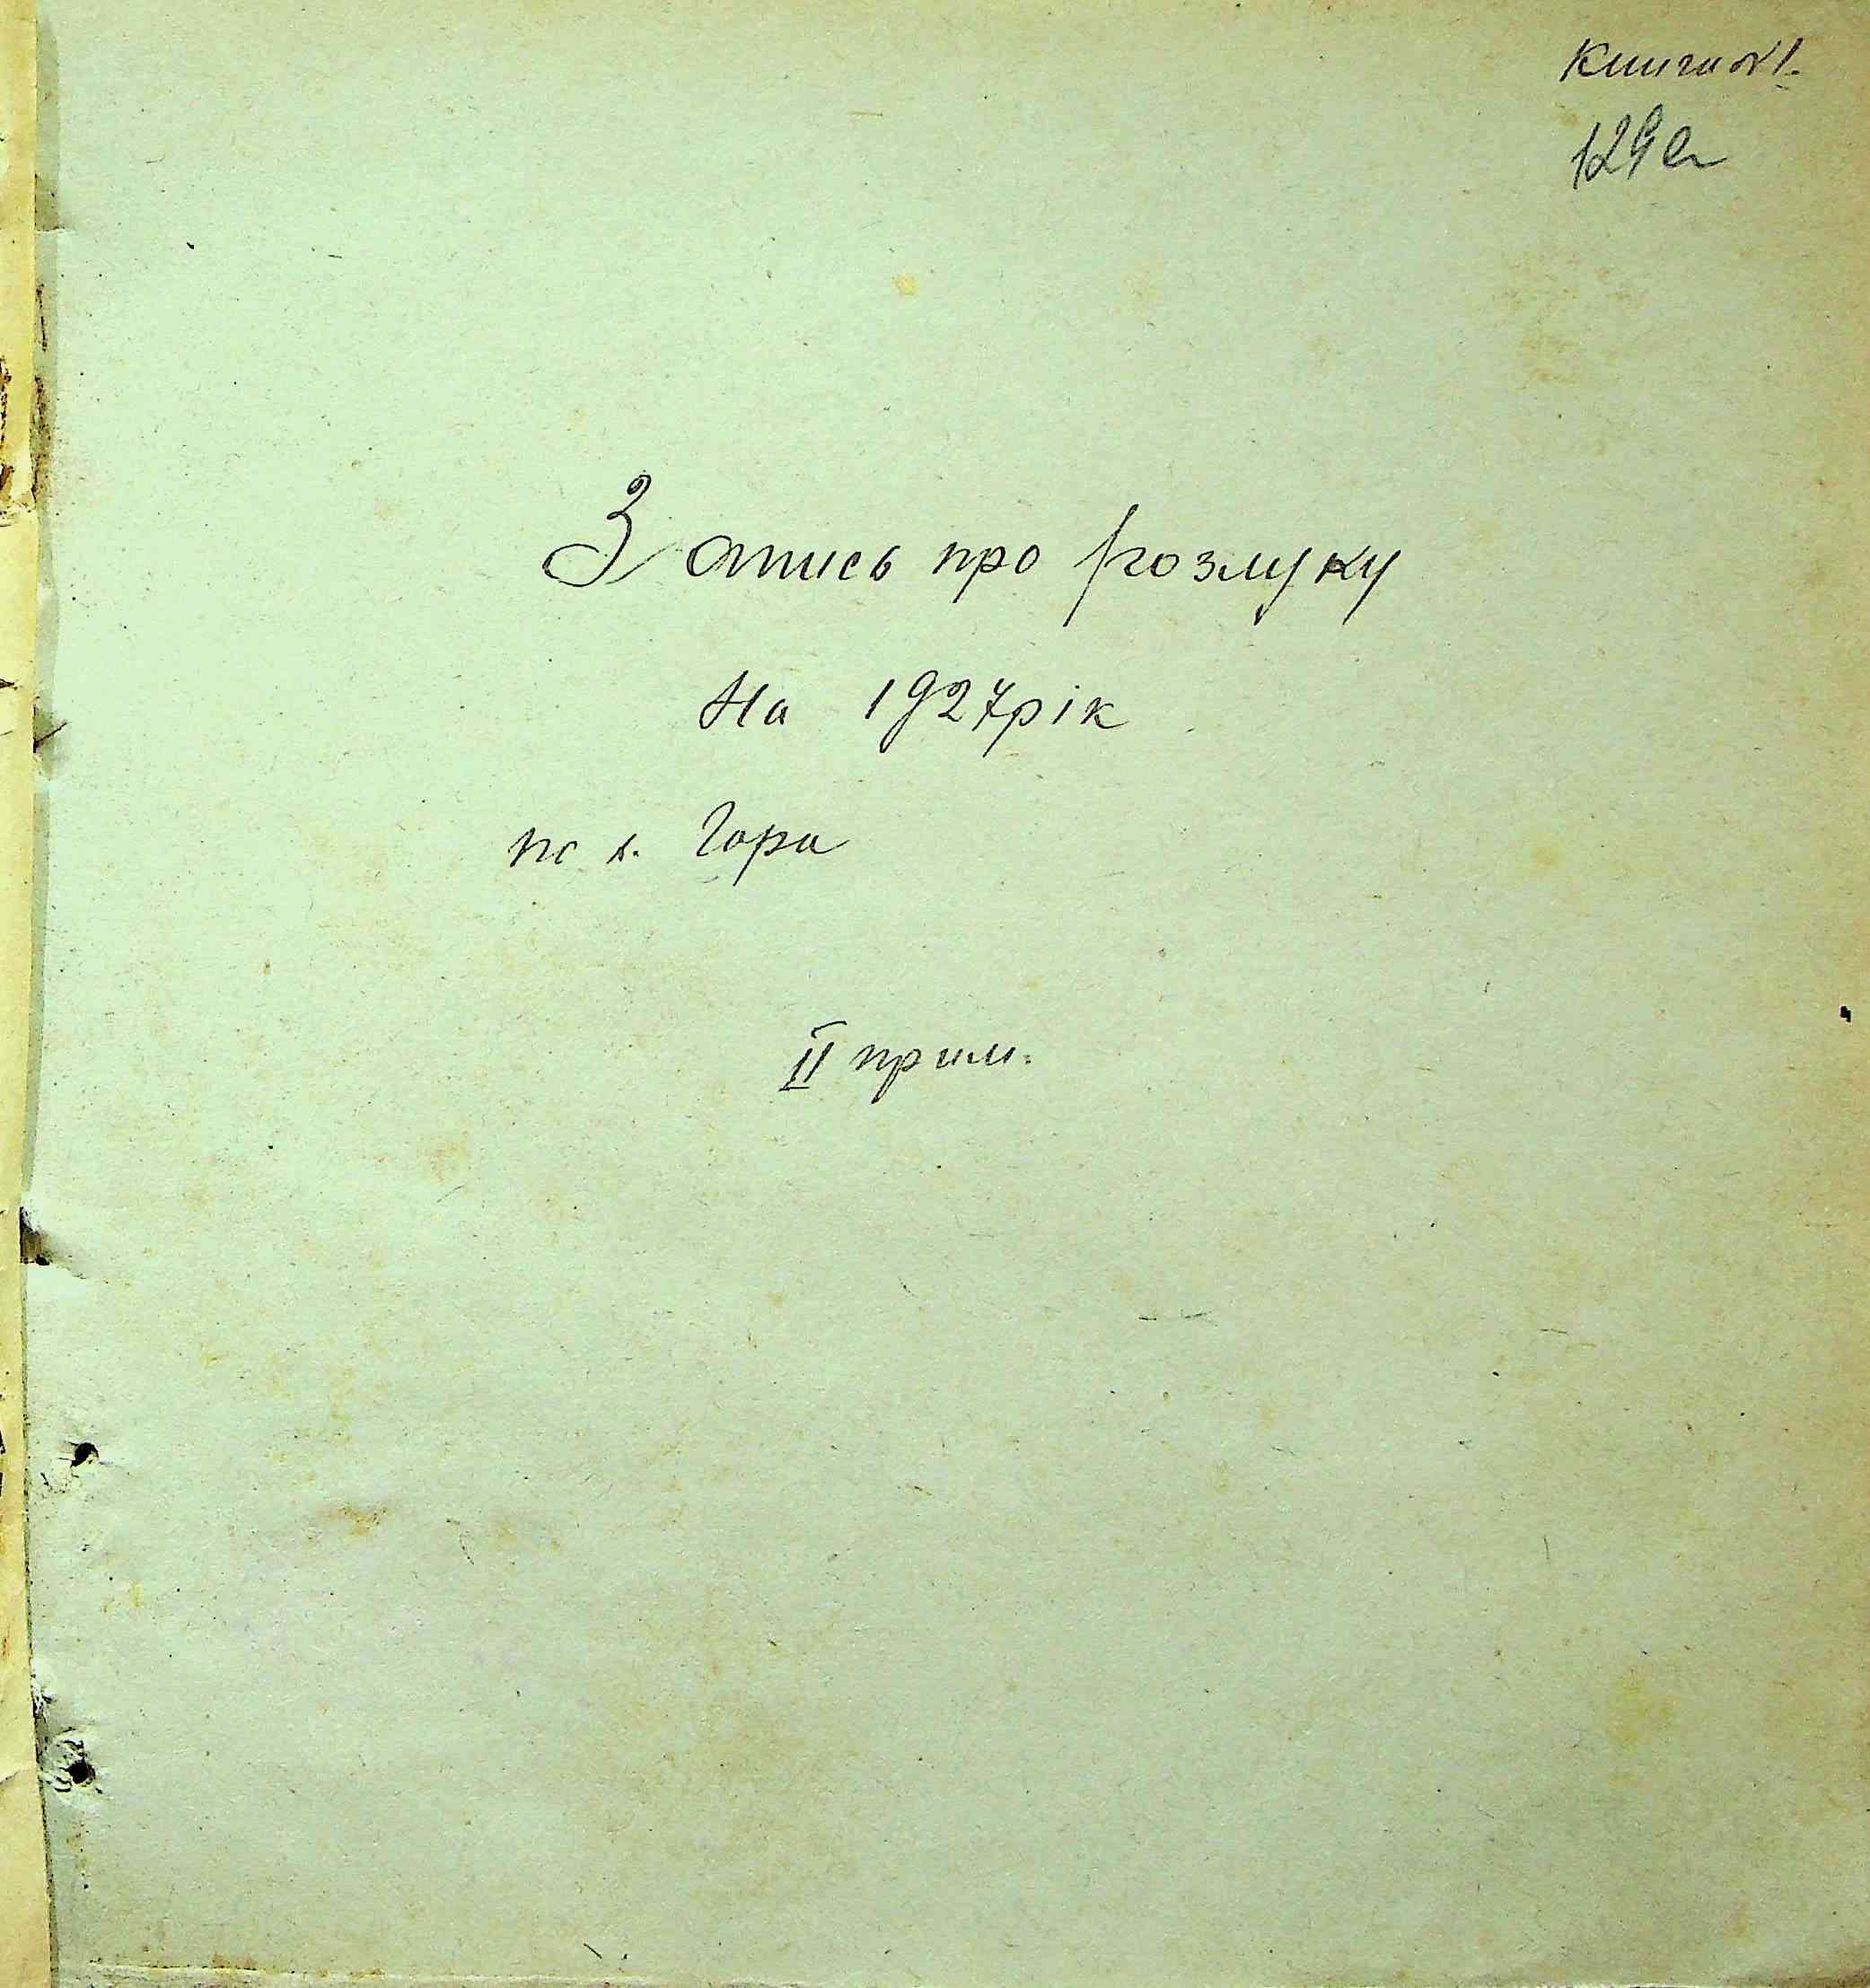 Книга №1.
129
Запись про розлуку
На 1927 рік
по с. Гора
II прим.